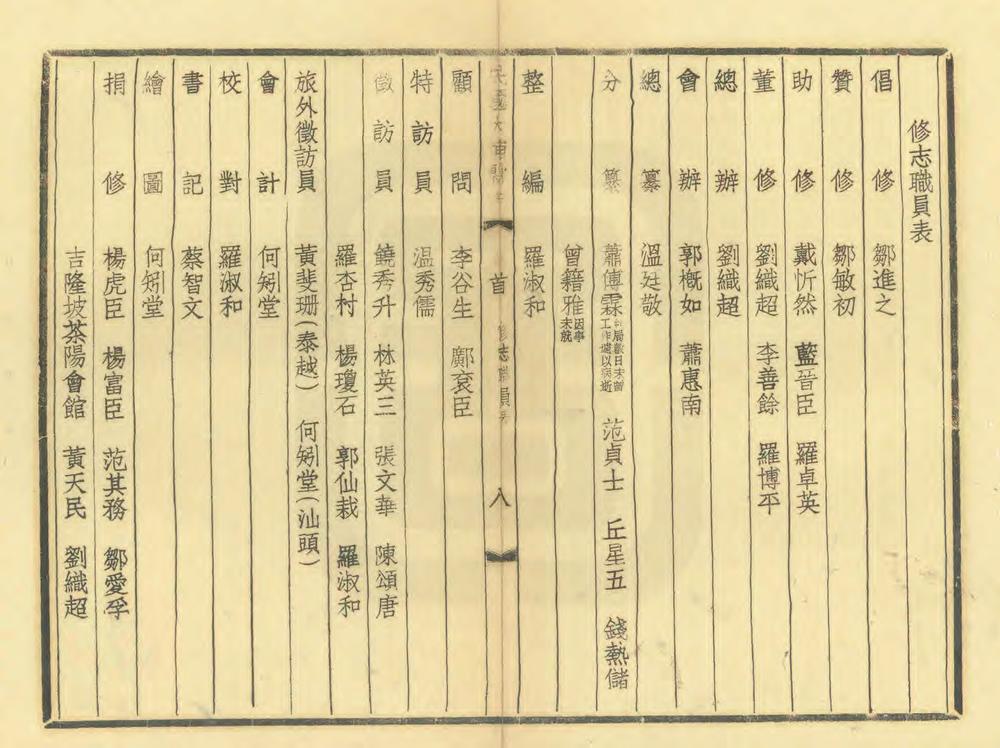 修志職員表
倡修 鄒進之
贊修 鄒敏初
助修 戴忻然 藍晉臣 羅卓英
董修 劉織超 李善餘 羅博平
總辦 劉織超
會辦 郭概如 蕭惠南
總纂 溫廷敬
分纂 蕭傅霖 范貞士 丘星五 錢熱儲
曾籍雅因事未就
整編 羅淑和
首 修志職員表 八
顧問 李谷生 鄺衮臣
特訪員 溫秀儒
徵訪員 饒秀升 林英三 張文華 陳頌唐
羅杏村 楊瓊石 郭仙栽 羅淑和
旅外徵訪員 黃斐珊(泰越) 何矧堂(汕頭)
會計 何矧堂
校對 羅淑和
書記 蔡智文
繪圖 何矧堂
捐修 楊虎臣 楊富臣 范其務 鄒愛孚
吉隆坡茶陽會館 黃天民 劉織超